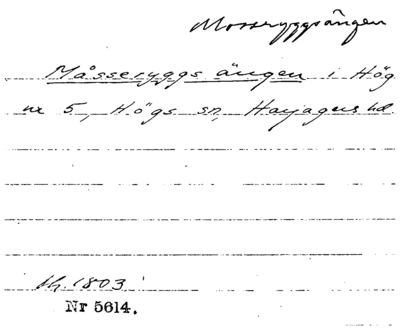 Mosseryggsängen
Måsseryggs ängen i Hög
nr 5, Högs sn, Harjagers hd.
1803
Nr 5614.